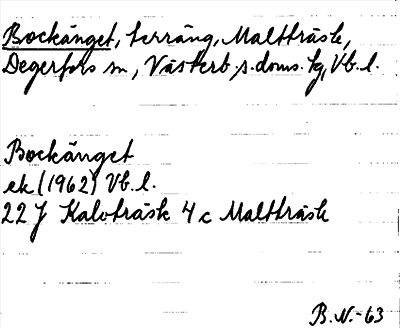 Bockänget, terräng, Maltträsk,
Degerfors sn, Västerb. s. doms. tg, Vb. l.
Bockänget
ek (1962) Vb. l.
22 J Kalvträsk 4 c Maltträsk
B.N.-63